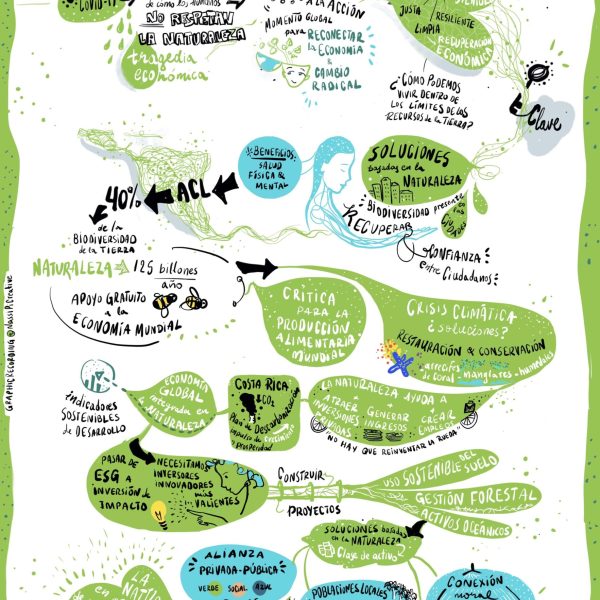 COVID-19
de cómo los humanos
NO RESPETAN
LA NATURALEZA
tragedia
económica
A LA ACCIÓN
MOMENTO GLOBAL
para RECONECTAR
LA ECONOMÍA
&
CAMBIO
RADICAL
JUSTA
RESILIENTE
LIMPIA
RECUPERACIÓN
ECONÓMICA
¿CÓMO PODEMOS
VIVIR DENTRO DE
LOS LÍMITES DE LOS
RECURSOS de la TIERRA?
Clave
BENEFICIOS:
SALUD
FÍSICA &
MENTAL
SOLUCIONES
basadas en la
NATURALEZA
BIODIVERSIDAD presente
en las
CIUDADES
RECUPERAR
CONFIANZA
entre Ciudadanos
40% ACL
de la
BIODIVERSIDAD
de la TIERRA
NATURALEZA 125 billones
año
APOYO GRATUITO
a la
ECONOMÍA MUNDIAL
CRÍTICA
PARA LA
PRODUCCIÓN
ALIMENTARIA
MUNDIAL
CRISIS CLIMÁTICA
¿soluciones?
RESTAURACIÓN & CONSERVACIÓN
arrecifes
de coral - manglares - humedales
GRAPHIC RECORDING @NussiP.Creative
indicadores
SOSTENIBLES
de DESARROLLO
ECONOMÍA
GLOBAL
integrada en
NATURALEZA
COSTA RICA
CO2
Plan de Descarbonización
impulso de crecimiento
& prosperidad
LA NATURALEZA AYUDA A
ATRAER
INVERSIONES
PRIVADAS
GENERAR
INGRESOS
+ CREAR
EMPLEOS
"NO HAY QUE REINVENTAR LA RUEDA"
PASAR DE
ESG A
INVERSIÓN de
IMPACTO
NECESITAMOS
INVERSORES
INNOVADORES
más
VALIENTES
CONSTRUIR
PROYECTOS
USO SOSTENIBLE DEL
SUELO
GESTIÓN FORESTAL
ACTIVOS OCEÁNICOS
SOLUCIONES basadas
en la NATURALEZA
Clase de activo
ALIANZA
PRIVADA-PÚBLICA
VERDE SOCIAL AZUL
POBLACIONES LOCALES
CONEXIÓN
moral
en
LA